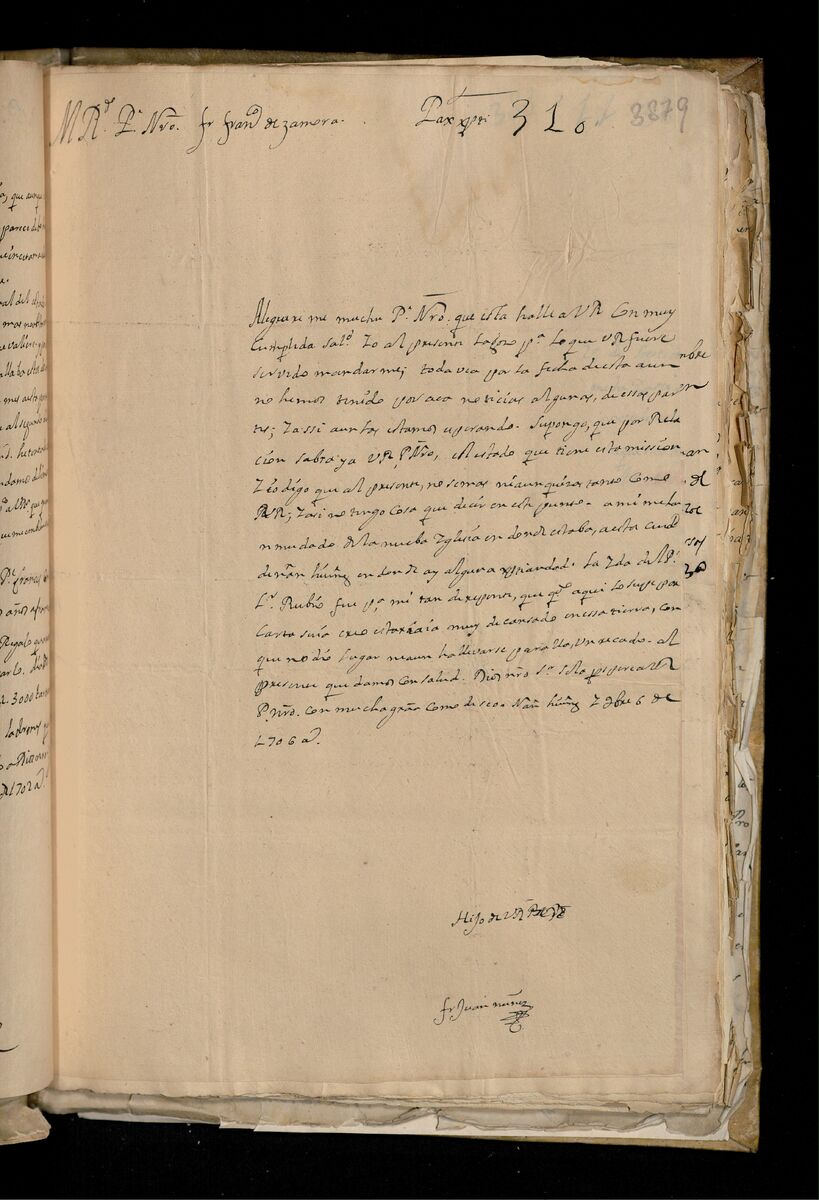 M R.^d P.^e Nrõ. fr fran^co de zamora. Pax xp̃i 310 3879
Alegrare me mucho P.^e Nrõ. que esta halle a VR Con muy
Cumplida sal^d. Yo al presente la gozo p^a lo que VR fuere
servido mandarme; toda via por la fecha de esta aun
no hemos tenido por aca noticias algunas, de essas par
tes; Y assi aun las estamos esperando. Supongo, que por Rela
cion sabra ya VR, P. Nrõ, el estado que tiene esta mission
Y io digo que al presente, no somos ni aun quiza tanto como
VR; Y asi no tengo cosa que decir en este punto. a mi me ha
n mudado de la nueba Yglesia en donde estaba, a esta Ciud^d
de nãn hiũng en donde ay alguna xpiandad. La Yda del P.^e
L.^r Rubio fue p^a mi tan de repente, que q^do aqui lo supe por
Carta suia creo estaria ia muy descansado en essa tierra, con
que no dio lugar ni aun ha llevarse para alla, un recado. al
presente quedamos con salud. Dios nr̃o S.^r se la prospere a VR
P. nr̃o. con mucha gr̃a como deseo. Nãn hiũng Y 9bre 6 de
1706 a.^s
Hijo de VR
fr Juan nuñez